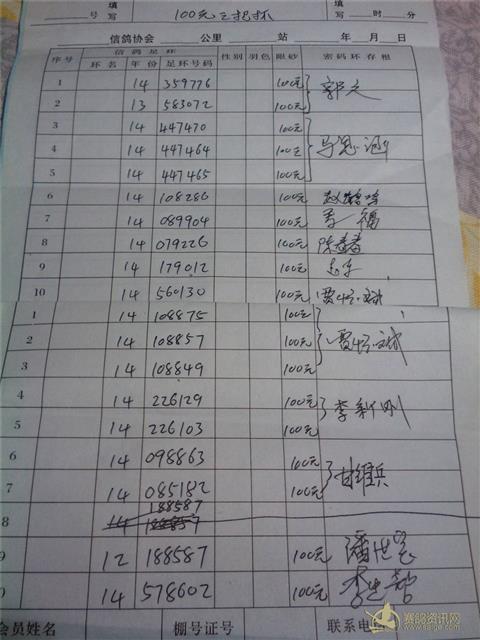 填
号 写 100元三把杯 写 时 分
信鸽协会 公里 站 年 月 日
序号 信鸽足环 性别 羽色 眼砂 密码环存根
环名 年份 足环号码
1 14 359776 100元
2 13 583072 100元
3 14 447470 100元
4 14 447464 100元
5 14 447465 100元
6 14 108286 100元
7 14 089904 100元 李一福
8 14 079226 100元 陈春春
9 14 179012 100元
10 14 560130 100元
1 14 108875 100元
2 14 108857 100元
3 14 108849 100元
4 14 226129 100元 李新刚
5 14 226103 100元
6 14 098863 100元 甘维兵
7 14 085182 100元
188587
8 14 188857
9 12 188587 100元
0 14 578602 100元
会员姓名 棚号证号 联系电
赛鸽资讯网
www.saige.com